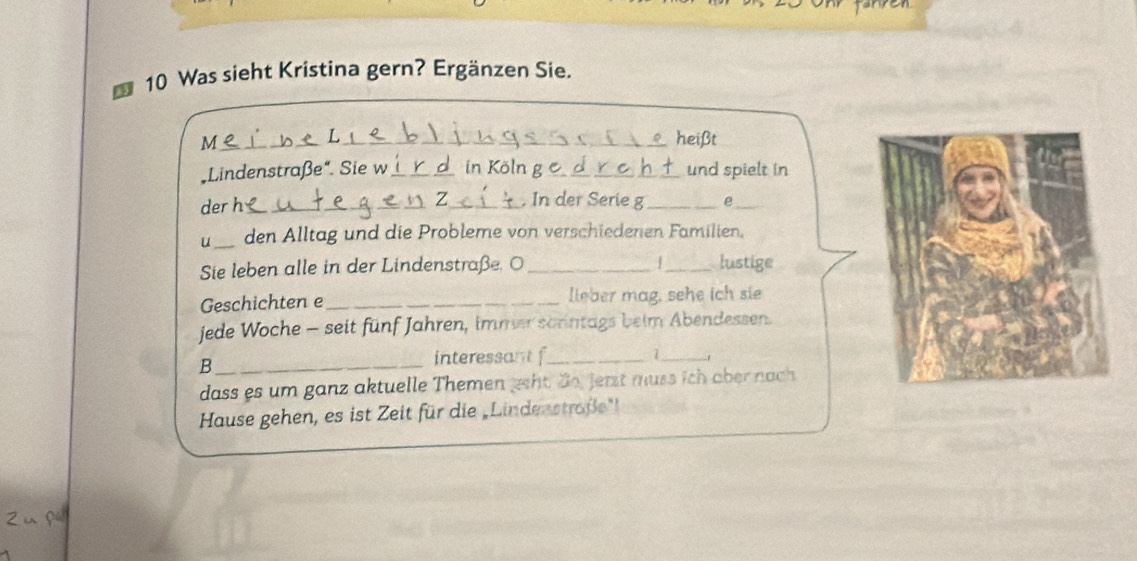 fahren
A3 10 Was sieht Kristina gern? Ergänzen Sie.
Meine Lieblingsserie heißt
„Lindenstraße“. Sie wird in Köln gedreht und spielt in
der heutegen Zeit. In der Serie g______ e__
u__ den Alltag und die Probleme von verschiedenen Familien.
Sie leben alle in der Lindenstraße. O____________ I____ lustige
Geschichten e____________________ lieber mag, sehe ich sie
jede Woche – seit fünf Jahren, immer sonntags beim Abendessen.
B__________________ interessant f________ i____,
dass es um ganz aktuelle Themen geht. So, jetzt muss ich aber nach
Hause gehen, es ist Zeit für die „Lindenstraße“!
zu